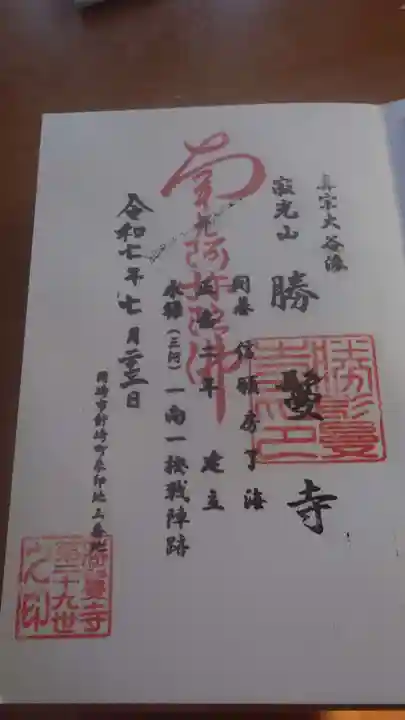 真宗大谷派
寂光山
勝鬘寺
開基 信願房了海
正嘉二年 建立
永禄(三河)一向一揆戦陣跡
南無阿弥陀佛
令和七年七月二十三日
岡崎市針崎町朱印地三番地
勝鬘寺
第二十九世
之印